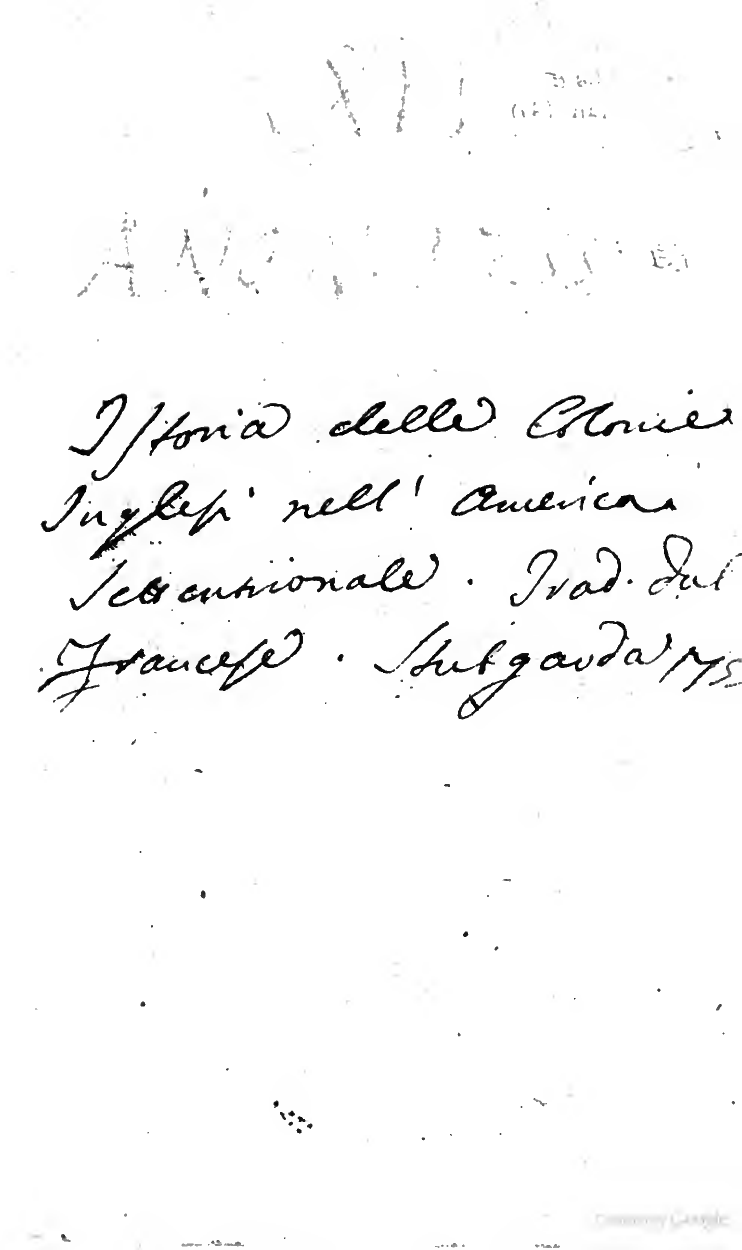 Istoria delle Colonie
Inglesi nell' America
Settentrionale. Trad. dal
Francese. Stutgarda 175